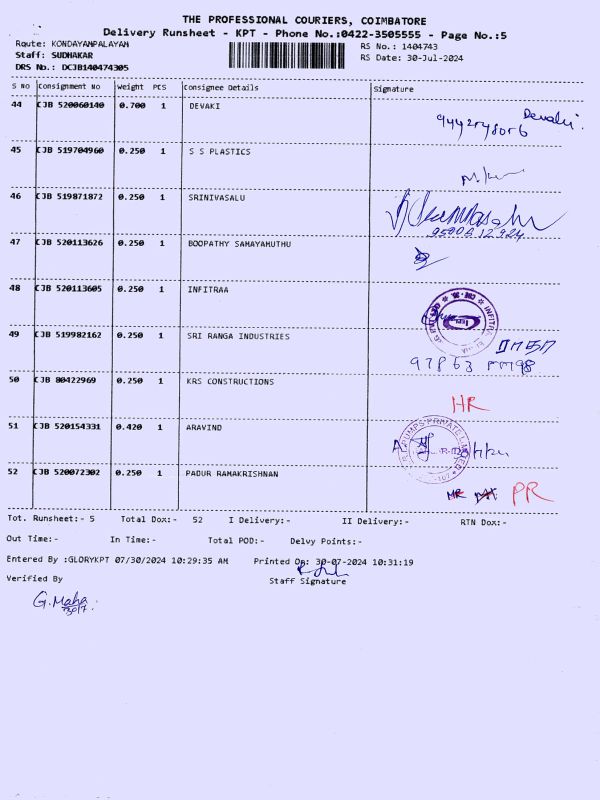 THE PROFESSIONAL COURIERS, COIMBATORE
Delivery Runsheet - KPT - Phone No.:0422-3505555 - Page No.:5
Route: KONDAYAMPALAYAM
RS No.: 1404743
Staff: SUDHAKAR
RS Date: 30-Jul-2024
DRS No.: DCJB140474305
S No Consignment No Weight PCS Consignee Details Signature
44 CJB 520060140 0.700 1 DEVAKI
Devaki
45 CJB 519704960 0.250 1 S S PLASTICS
46 CJB 519871872 0.250 1 SRINIVASALU
47 CJB 520113626 0.250 1 BOOPATHY SAHAYAMUTHU
48 CJB 520113605 0.250 1 INFITRAA
49 CJB 519982162 0.250 1 SRI RANGA INDUSTRIES
50 CJB 80422969 0.250 1 KRS CONSTRUCTIONS
HR
51 CJB 520154331 0.420 1 ARAVIND
PUMPS PRIVATE LIMITED
52 CJB 520072302 0.250 1 PADUR RAMAKRISHNAN
PR
Tot. Runsheet:- 5 Total Dox:- 52 I Delivery:- II Delivery:- RTN Dox:-
Out Time:- In Time:- Total POD:- Delvy Points:-
Entered By :GLORYKPT 07/30/2024 10:29:35 AM Printed On: 30-07-2024 10:31:19
Verified By
Staff Signature
G. Maha